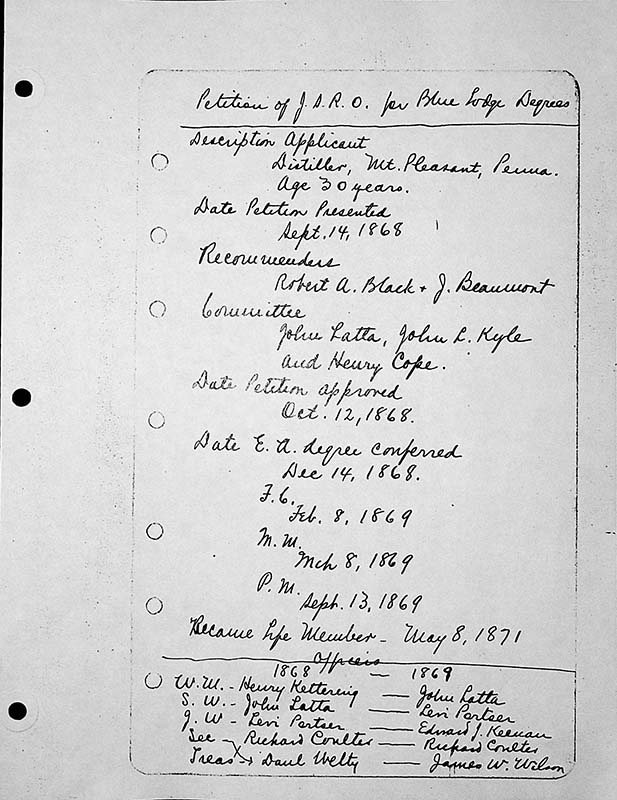 Petition of J.S.R.O. for Blue Lodge Degrees
Description Applicant
Distiller, Mt. Pleasant, Penna.
Age 30 years.
Date Petition Presented
Sept. 14, 1868
Recommenders
Robert A. Black + J. Beaumont
Committee
John Latta, John L. Kyle
and Henry Cope.
Date Petition approved
Oct. 12, 1868.
Date E. A. degree conferred
Dec 14, 1868.
F. C.
Feb. 8, 1869
M. M.
Mch 8, 1869
P. M.
Sept. 13, 1869
Became Life Member - May 8, 1871
Officers
1868 - 1869
W. M. - Henry Kettering — John Latta
S. W. - John Latta — Levi Portser
J. W - Levi Portser — Edward J. Keenan
Sec - Richard Coulter — Richard Coulter
Treas - Danl Welty — James W. Wilson